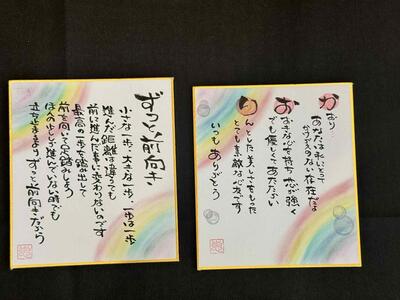 かおり
あなたは私にとって
かけがえのない存在だよ
おおきな心を持ち 芯が強く
でも優しくてあたたかい
りんとした美しさをもった
とても素敵な心友です
いつもありがとう
ずっと前向き
小さな一歩、大きな一歩、一歩は一歩
進んだ距離は違っても
前に進んだ事に変わりないのです
最高の一歩を踏み出して
前を向いて足踏みしよう
ほんの少しか進んでいない時でも
立ち止まるよりずっと前向きだから